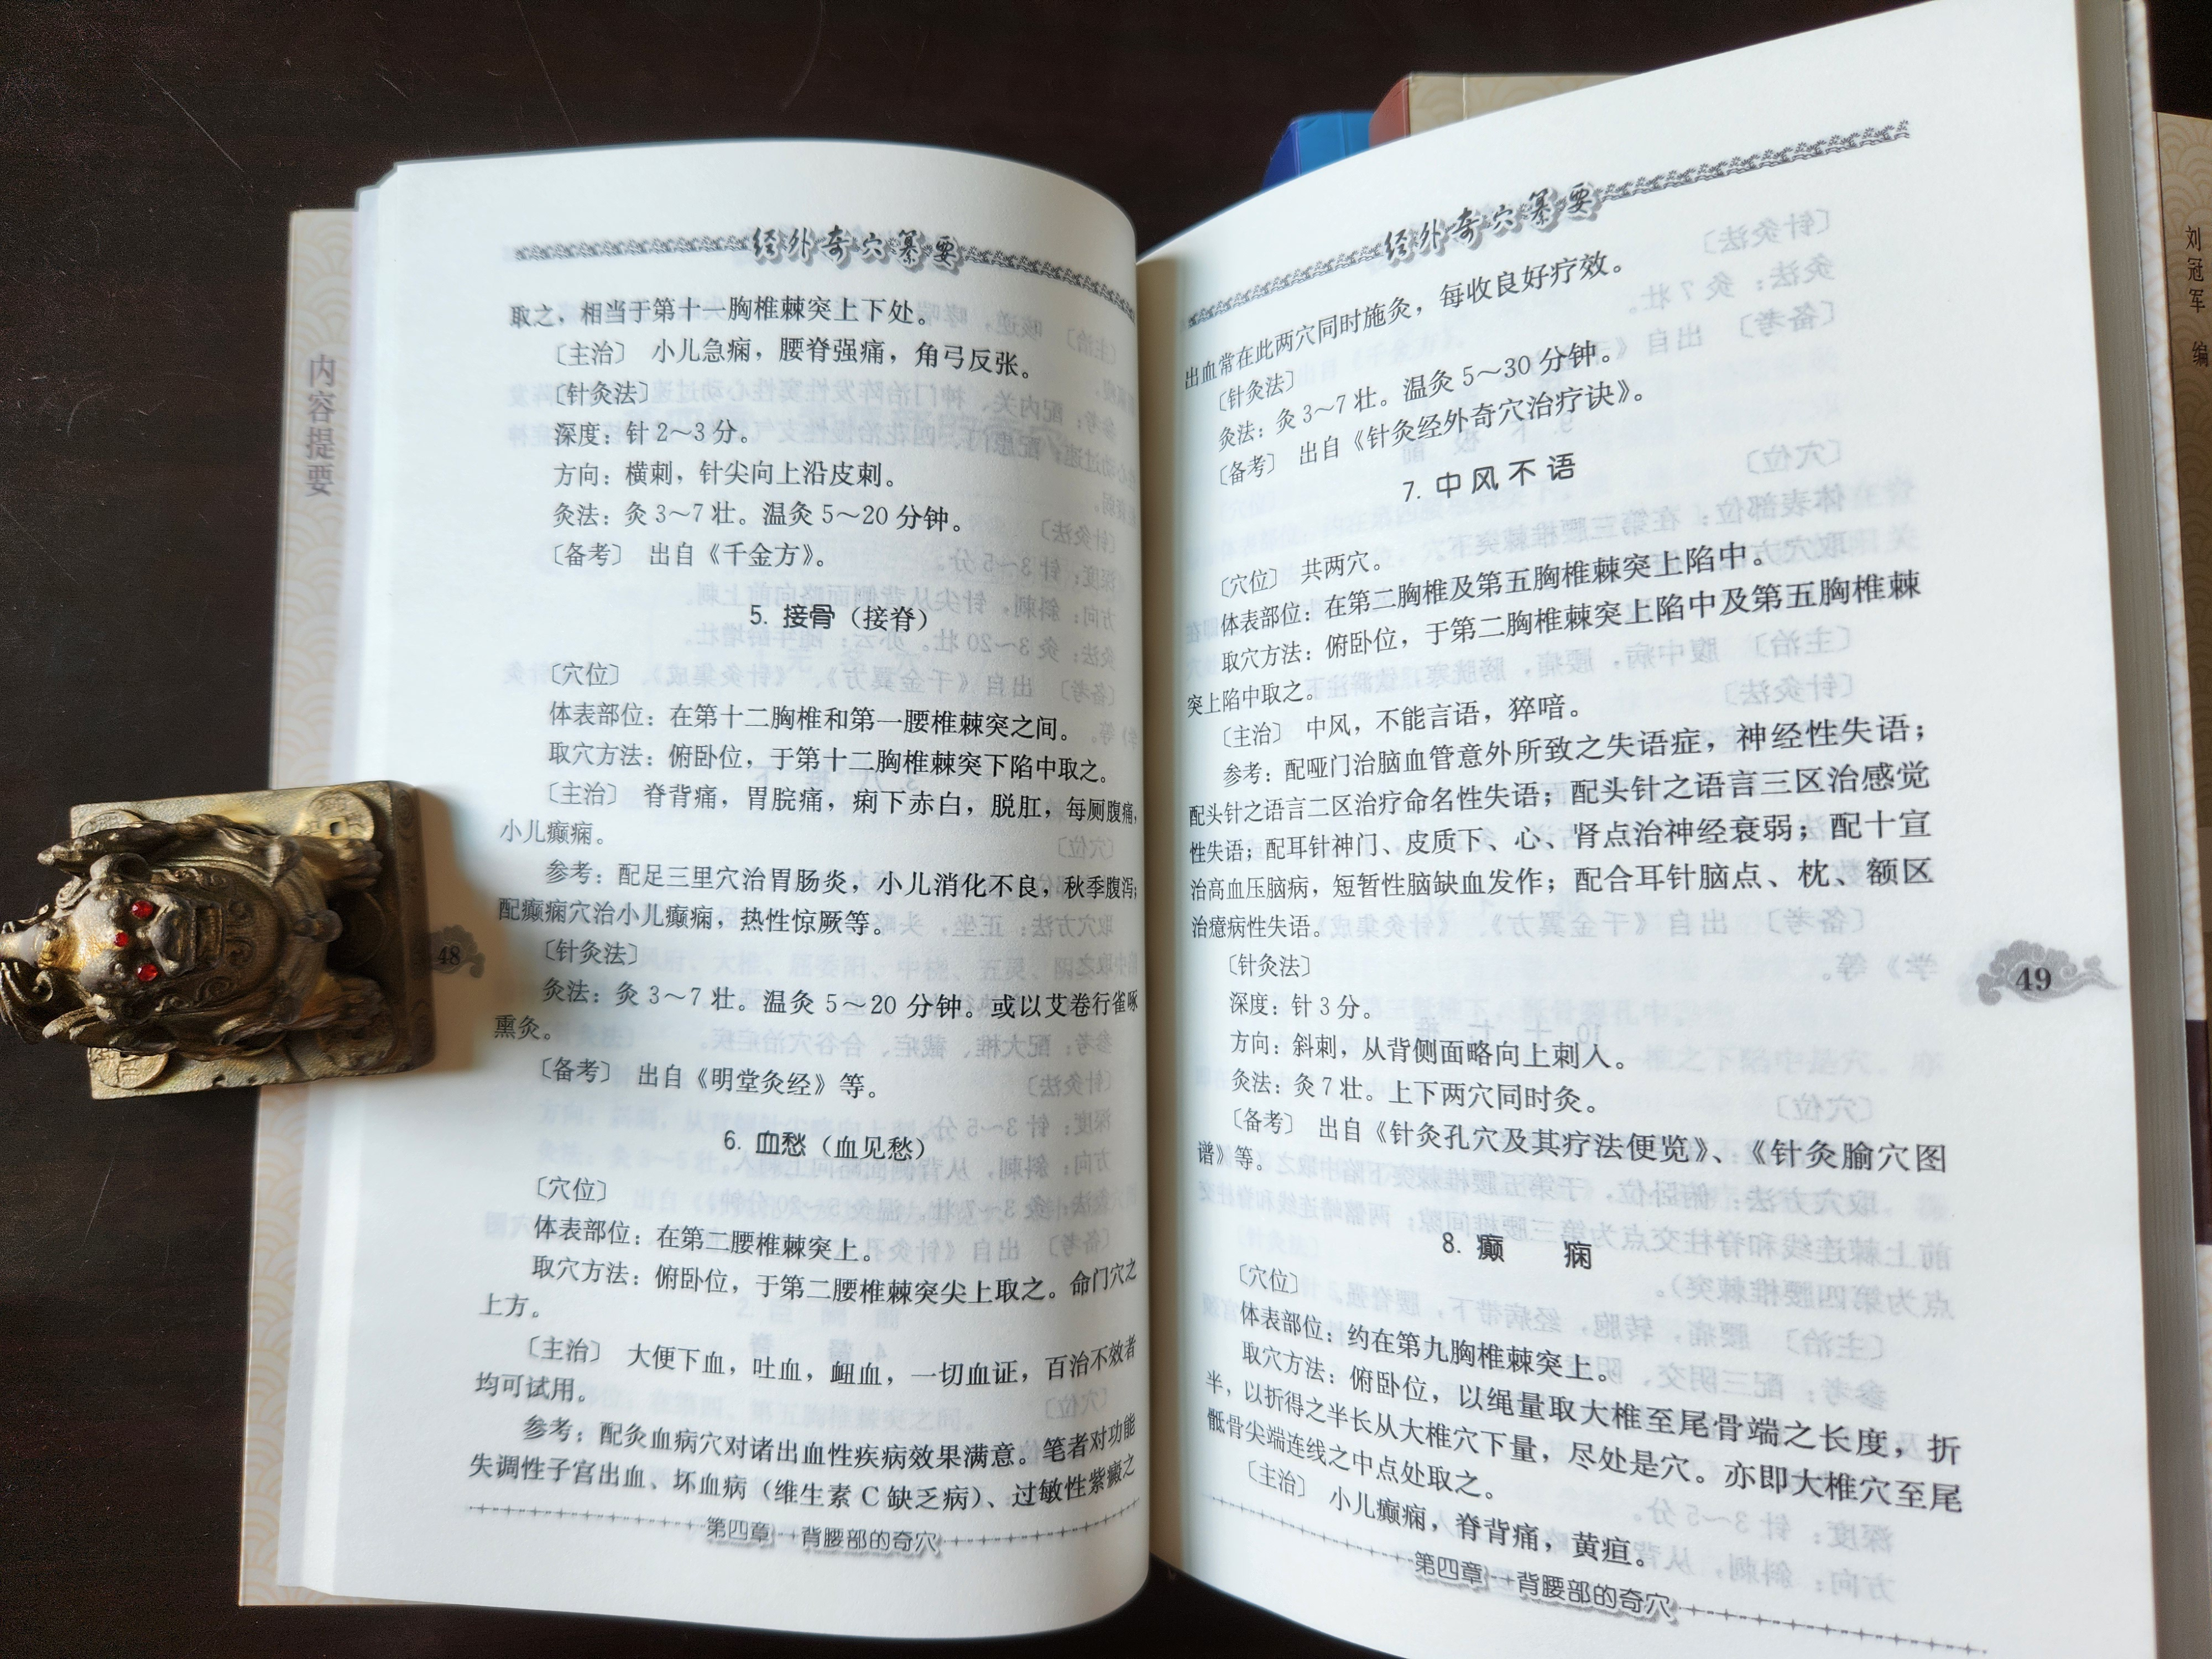 经外奇穴纂要
取之，相当于第十一胸椎棘突上下处。
〔主治〕 小儿急痫，腰脊强痛，角弓反张。
〔针灸法〕
深度：针2～3分。
方向：横刺，针尖向上沿皮刺。
灸法：灸3～7壮。温灸5～20分钟。
〔备考〕 出自《千金方》。
5. 接骨（接脊）
〔穴位〕
体表部位：在第十二胸椎和第一腰椎棘突之间。
取穴方法：俯卧位，于第十二胸椎棘突下陷中取之。
〔主治〕 脊背痛，胃脘痛，痢下赤白，脱肛，每厕腹痛，
小儿癫痫。
参考：配足三里穴治胃肠炎，小儿消化不良，秋季腹泻；
配癫痫穴治小儿癫痫，热性惊厥等。
〔针灸法〕
灸法：灸3～7壮。温灸5～20分钟。或以艾卷行雀啄
熏灸。
〔备考〕 出自《明堂灸经》等。
6. 血愁（血见愁）
〔穴位〕
体表部位：在第二腰椎棘突上。
取穴方法：俯卧位，于第二腰椎棘突尖上取之。命门穴之
上方。
〔主治〕 大便下血，吐血，衄血，一切血证，百治不效者
均可试用。
参考：配灸血病穴对诸出血性疾病效果满意。笔者对功能
失调性子宫出血、坏血病（维生素C缺乏病）、过敏性紫癜之
第四章 背腰部的奇穴
48
内容提要
经外奇穴纂要
出血常在此两穴同时施灸，每收良好疗效。
〔针灸法〕
灸法：灸3～7壮。温灸5～30分钟。
〔备考〕 出自《针灸经外奇穴治疗诀》。
7. 中风不语
〔穴位〕 共两穴。
体表部位：在第二胸椎及第五胸椎棘突上陷中。
取穴方法：俯卧位，于第二胸椎棘突上陷中及第五胸椎棘
突上陷中取之。
〔主治〕 中风，不能言语，猝喑。
参考：配哑门治脑血管意外所致之失语症，神经性失语；
配头针之语言二区治疗命名性失语；配头针之语言三区治感觉
性失语；配耳针神门、皮质下、心、肾点治神经衰弱；配十宣
治高血压脑病，短暂性脑缺血发作；配合耳针脑点、枕、额区
治癔病性失语。
〔针灸法〕
深度：针3分。
方向：斜刺，从背侧面略向上刺入。
灸法：灸7壮。上下两穴同时灸。
〔备考〕 出自《针灸孔穴及其疗法便览》、《针灸腧穴图
谱》等。
8. 癫 痫
〔穴位〕
体表部位：约在第九胸椎棘突上。
取穴方法：俯卧位，以绳量取大椎至尾骨端之长度，折
半，以折得之半长从大椎穴下量，尽处是穴。亦即大椎穴至尾
骶骨尖端连线之中点处取之。
〔主治〕 小儿癫痫，脊背痛，黄疸。
第四章 背腰部的奇穴
49
刘冠军 编